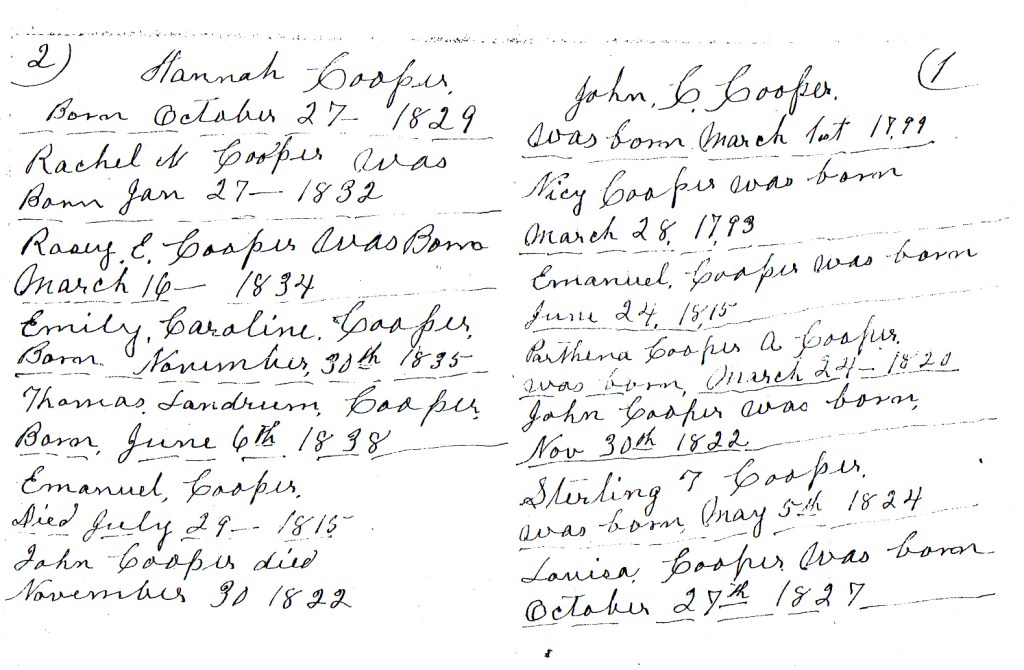 (1
John, C. Cooper.
was born March 1st 1799
Nicy Cooper was born
March 28, 1793
Emanuel, Cooper was born
June 24, 1815
Parthena Cooper A Cooper,
was born, March 24 - 1820
John Cooper was born,
Nov 30th 1822
Sterling T Cooper,
was born, May 5th 1824
Louisa, Cooper was born
October 27th 1827
2)
Hannah Cooper,
Born October 27 - 1829
Rachel N Cooper was
Born Jan 27 - 1832
Rosey, E. Cooper was Born
March 16 - 1834
Emily, Caroline, Cooper,
Born November, 30th 1835
Thomas, Landrum, Cooper
Born, June 6th 1838
Emanuel, Cooper,
Died July 29 - 1815
John Cooper died
November 30 1822